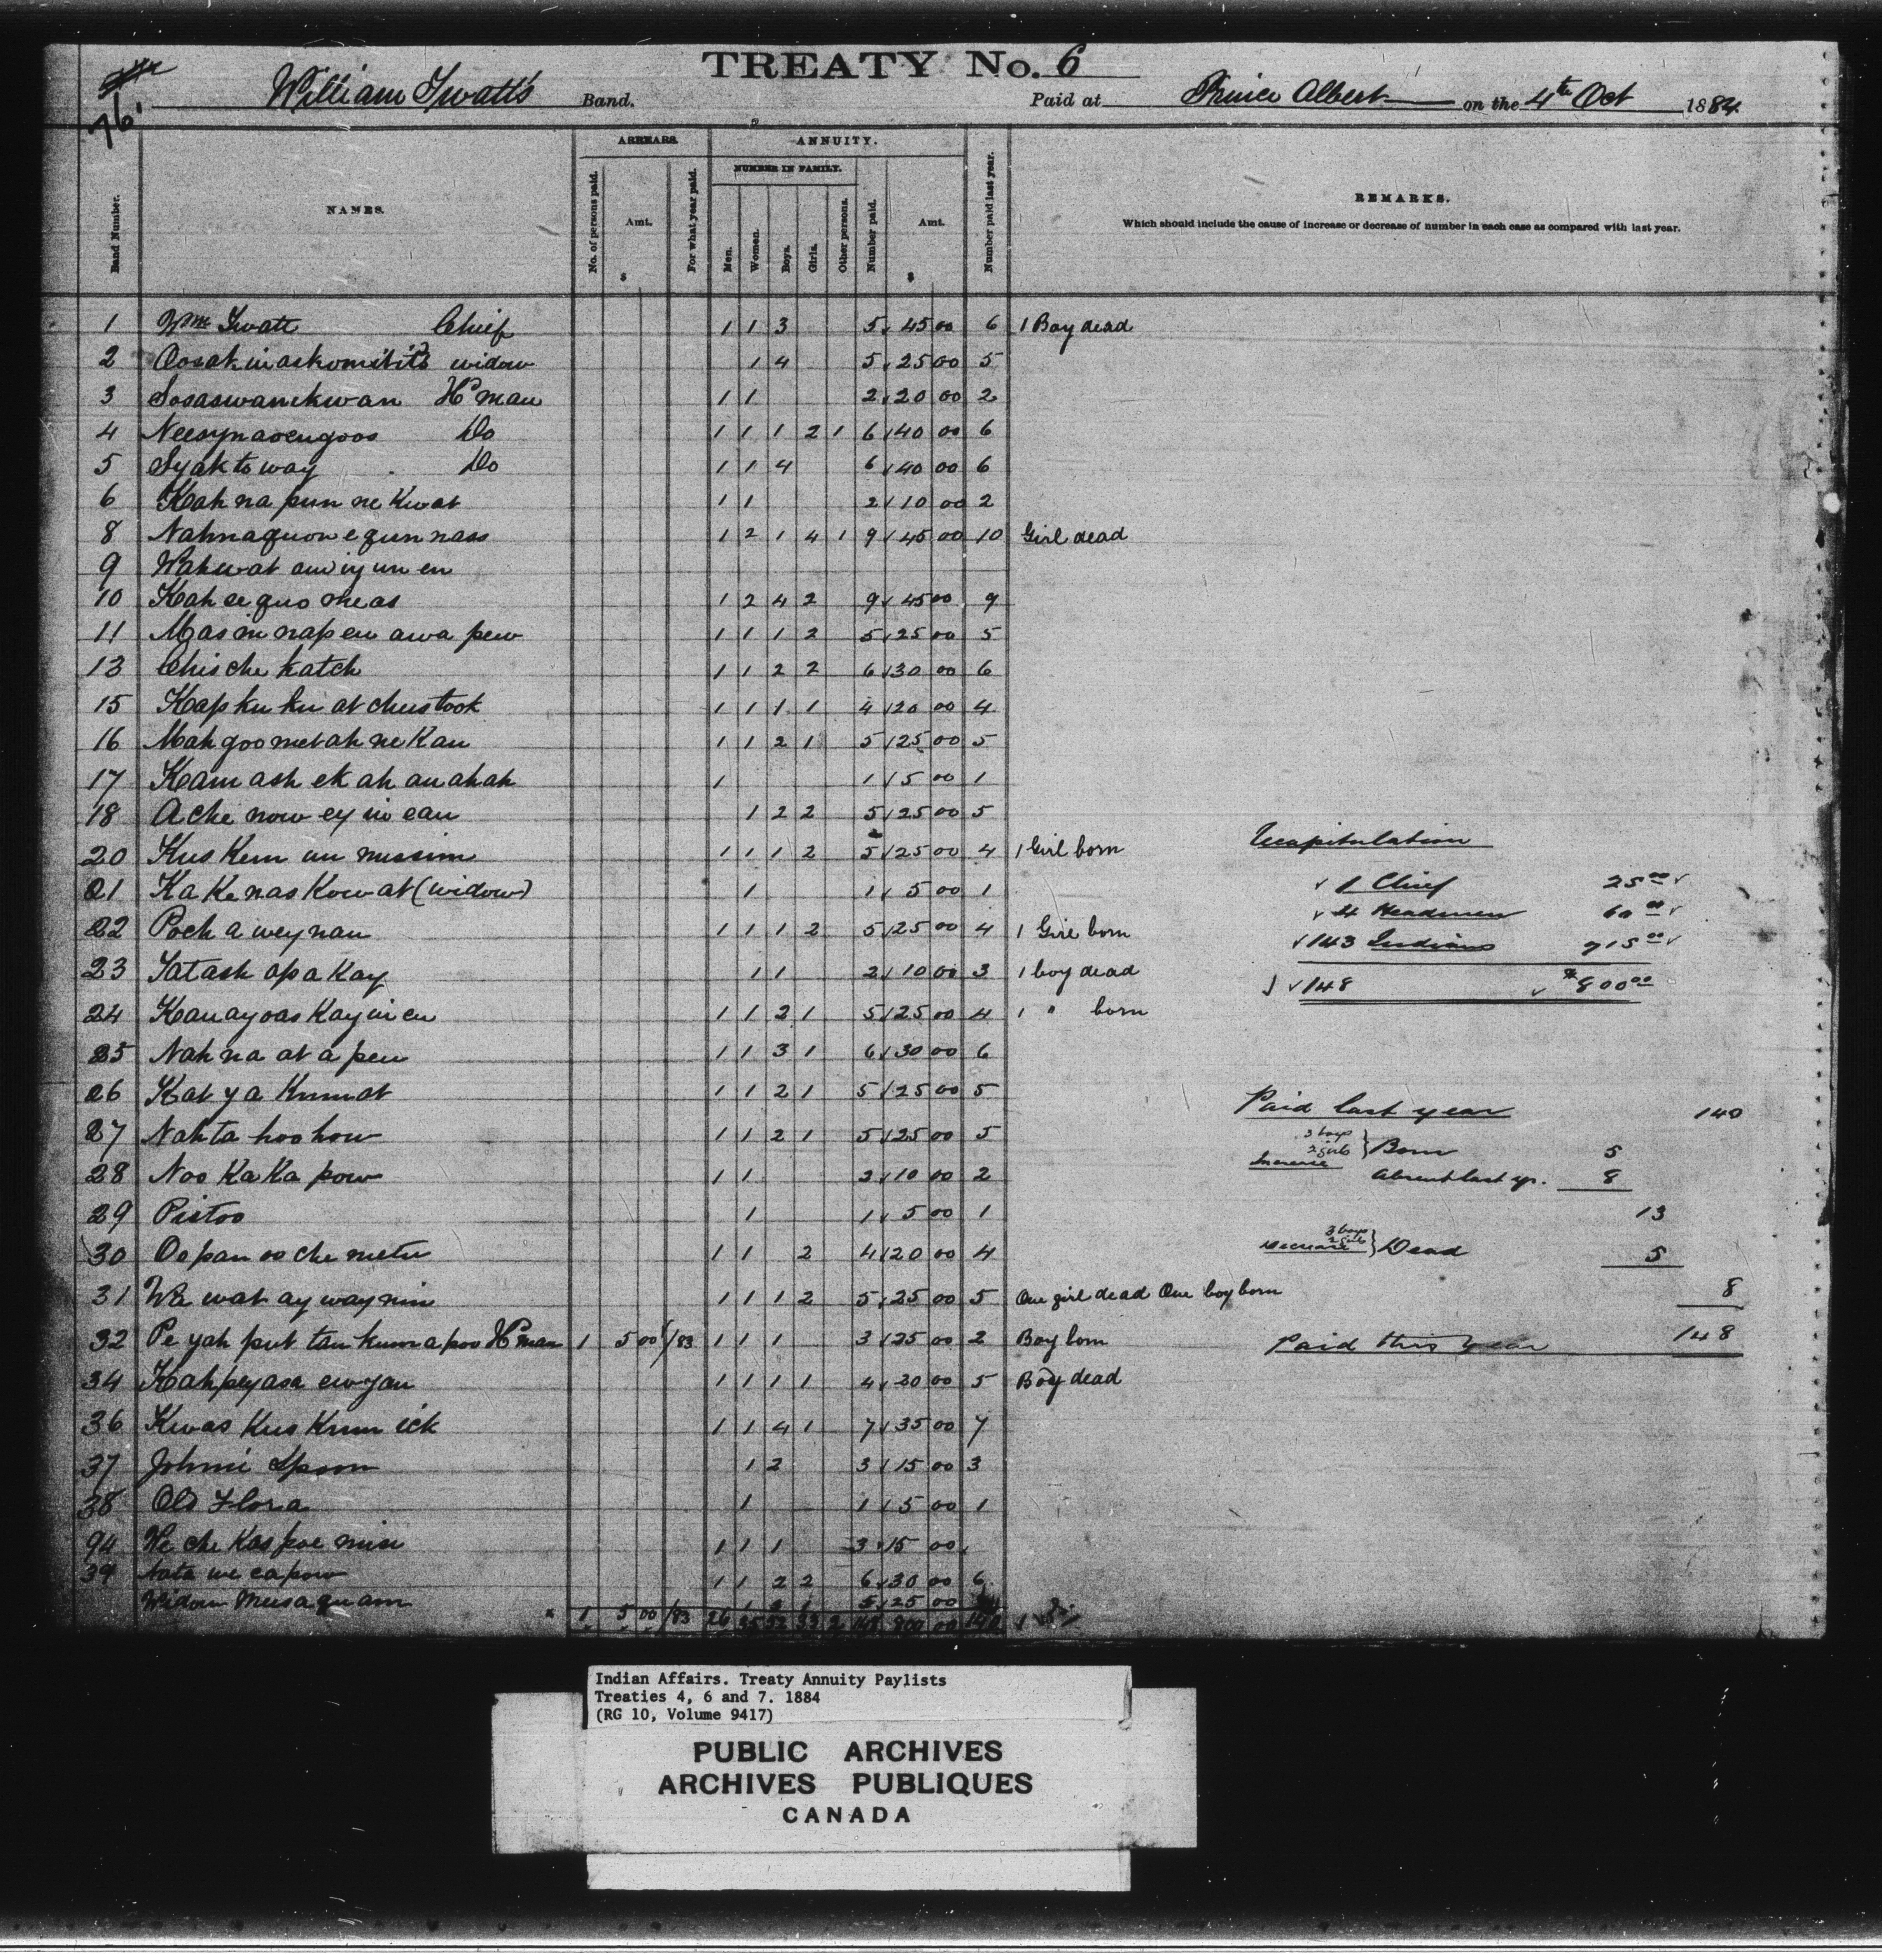 TREATY No. 6
76.
William Twatt's Band. Paid at Prince Albert on the 4th Oct 1884
ARREARS. ANNUITY.
NUMBER IN FAMILY.
Band Number. NAMES. No. of persons paid. Amt. $ For what year paid. Men. Women. Boys. Girls. Other persons. Number paid. Amt. $ Number paid last year. REMARKS.
Which should include the cause of increase or decrease of number in each case as compared with last year.
1 Wm Twatt Chief 1 1 3 5 45 00 6 1 Boy dead
2 widow 1 4 5 25 00 5
3 Sosaswanekwan H'man 1 1 2 20 00 2
4 Do 1 1 1 2 1 6 40 00 6
5 Syaktoway Do 1 1 4 6 40 00 6
6 Kah na pun ne kwat 1 1 2 10 00 2
8 Nahnaquon e qun nass 1 2 1 4 1 9 45 00 10 Girl dead
9
10 Kah se quo meas 1 2 4 2 9 45 00 9
11 Mas in nap eu awa pew 1 1 1 2 5 25 00 5
13 Chis che katch 1 1 2 2 6 30 00 6
15 Kap ku ku at chustook 1 1 1 1 4 20 00 4
16 Mah goo met ah ne Kau 1 1 2 1 5 25 00 5
17 Kam ash ek ah an ah ah 1 1 5 00 1
18 A che now ey in eau 1 2 2 5 25 00 5
20 Kus Kem un mussim 1 1 1 2 5 25 00 4 1 Girl born
Recapitulation
21 Ka Ke nas Kow at (widow) 1 1 5 00 1
1 Chief 25 00
4 Headmen 60 00
22 Poch a wey nau 1 1 1 2 5 25 00 4 1 Girl born
143 Indians 715 00
23 Tat ash apa Kay 1 1 2 10 00 3 1 boy dead
148 $800 00
24 Kau ay oas Kay in eu 1 1 2 1 5 25 00 4 1 " born
25 Nah na at a pew 1 1 3 1 6 30 00 6
26 Kat y a Kumat 1 1 2 1 5 25 00 5
Paid last year 140
27 Nahta hoo how 1 1 2 1 5 25 00 5
3 boys
2 girls } Born 5
Increase
28 Noo Ka Ka pow 1 1 2 10 00 2
Absent last yr. 8
29 Pistoo 1 1 5 00 1
13
30 Oo pan oo che metu 1 1 2 4 20 00 4
3 boys
2 girls
Decrease } Dead 5
31 Wa wat ay way nin 1 1 1 2 5 25 00 5 One girl dead One boy born
8
32 Pe yah put tan kum a poo H'man 1 5 00 /83 1 1 1 3 25 00 2 Boy born
Paid this year 148
34 Kahpeyasa ewyau 1 1 1 1 4 20 00 5 Boy dead
36 Kwas Kus Kum ick 1 1 4 1 7 35 00 7
37 Johnni 1 2 3 15 00 3
38 Old Flora 1 1 5 00 1
94 We che Kas poe min 1 1 1 3 15 00
39 Nata we capow 1 1 2 2 6 30 00 6
Widow Musaquam 5 25 00
1 5 00 /83 26 35 52 33 2 148 800 00 140
Indian Affairs. Treaty Annuity Paylists
Treaties 4, 6 and 7. 1884
(RG 10, Volume 9417)
PUBLIC ARCHIVES
ARCHIVES PUBLIQUES
CANADA